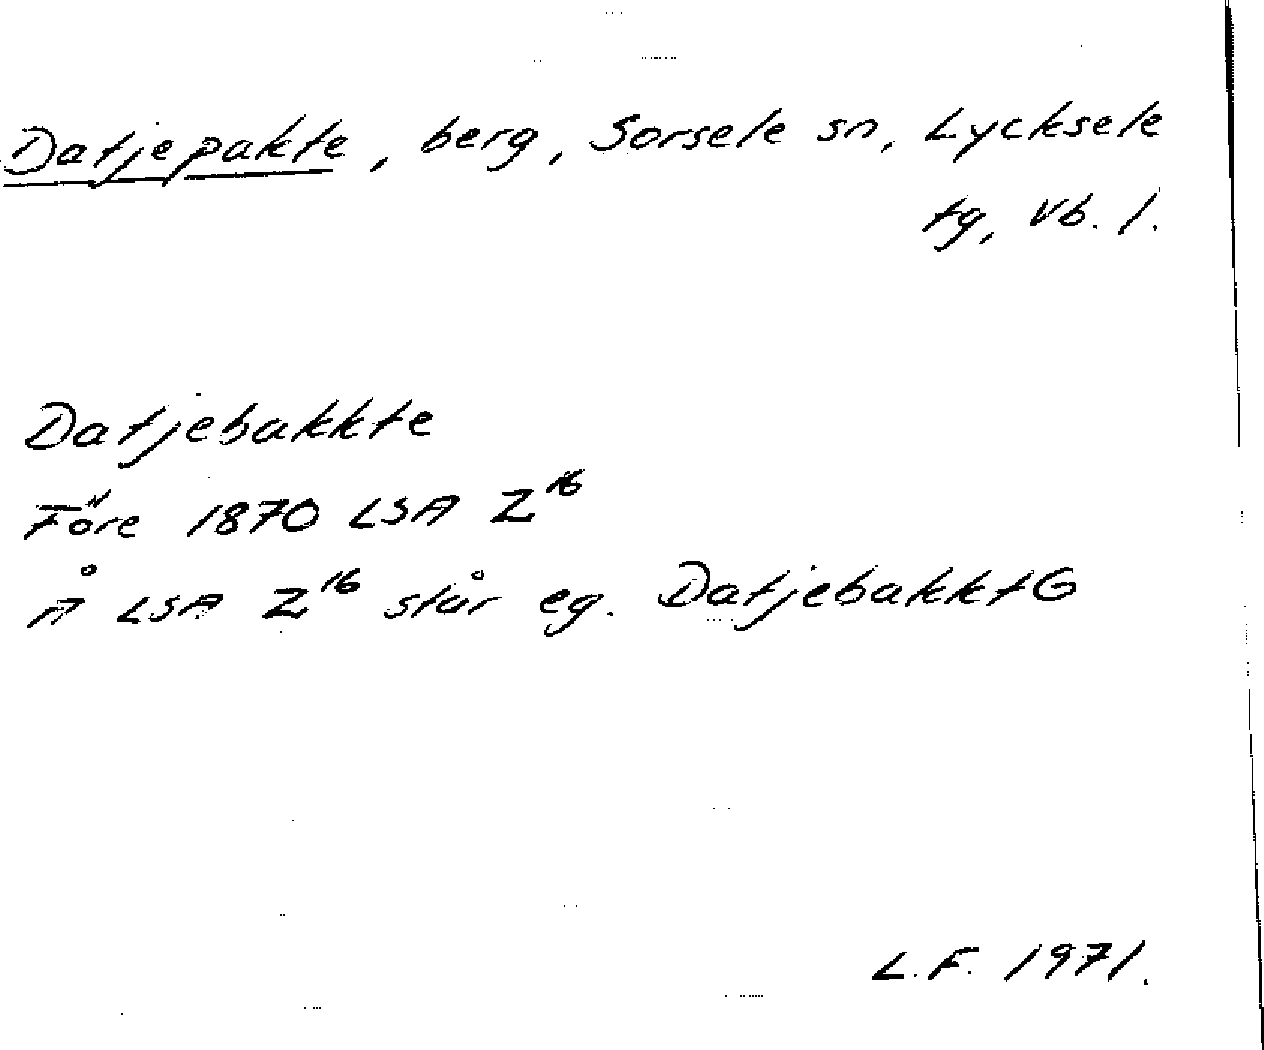 Datjepakte, berg, Sorsele sn, Lycksele
tg, Vb. l.
Datjebakkte
Före 1870 LSA Z16
Å LSA Z16 står eg. DatjebakktG
L.F. 1971.